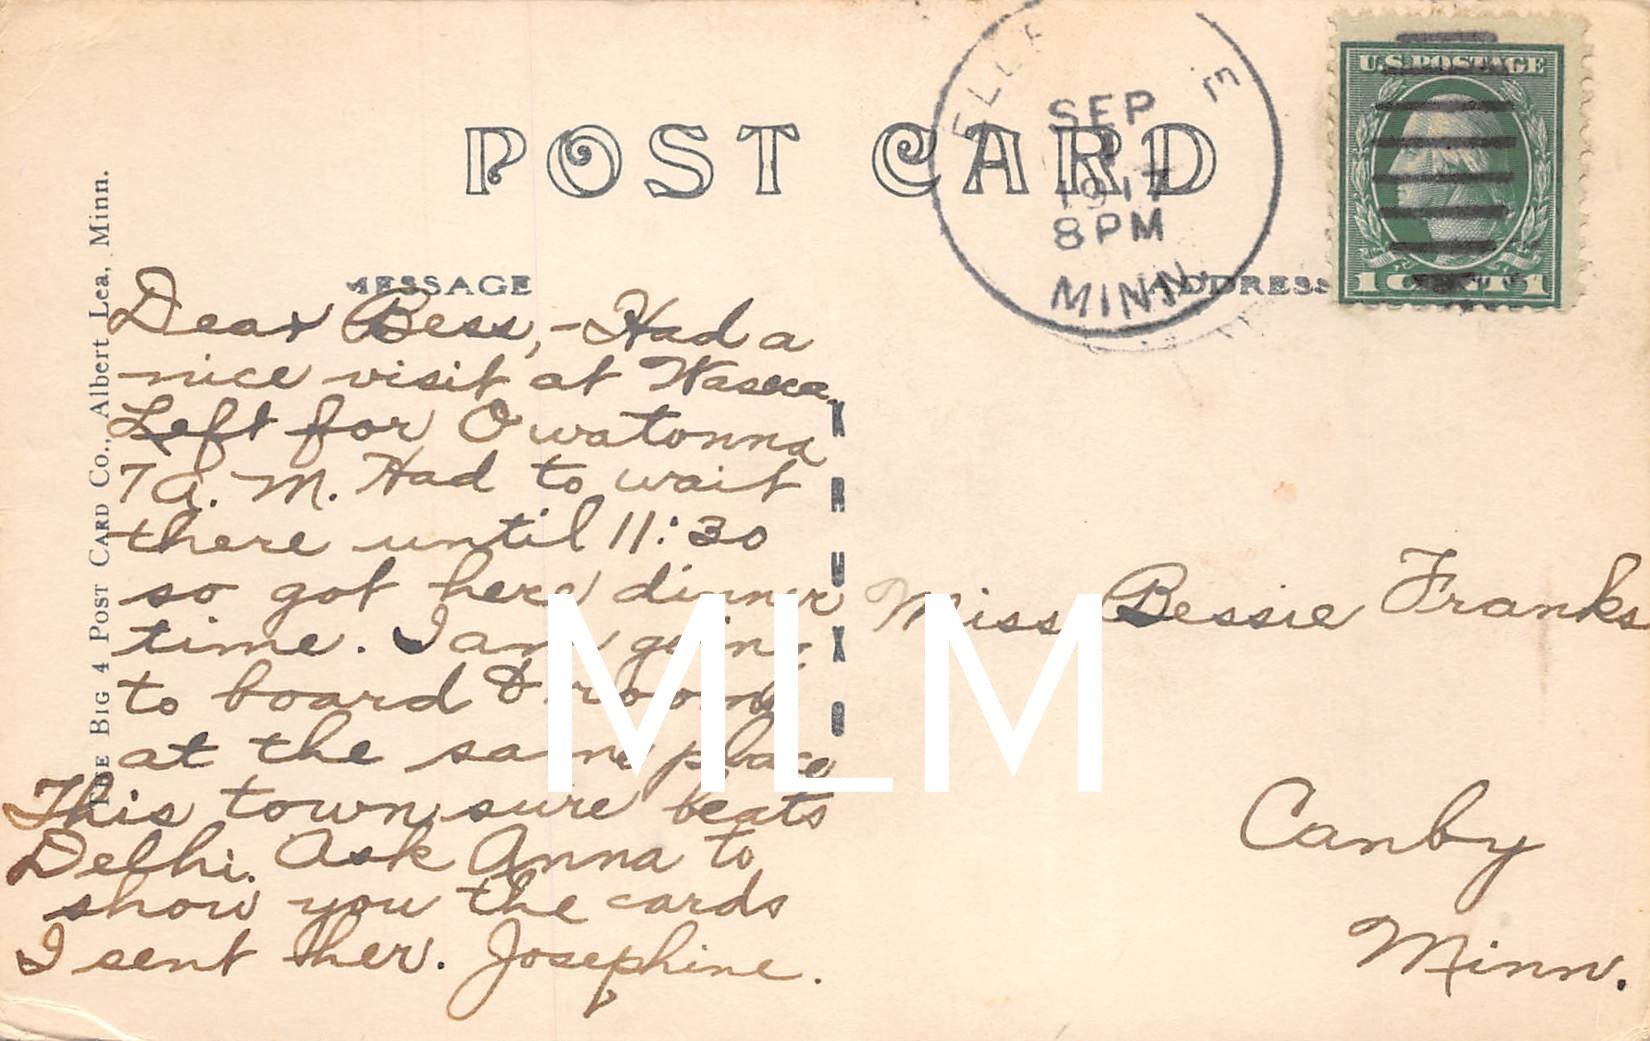 POST CARD
SEP
1917
8 PM
MINN.
U.S. POSTAGE
1 CENT 1
MESSAGE
ADDRESS
THE BIG 4 POST CARD CO., Albert Lea, Minn.
Dear Bess, - Had a
nice visit at Waseca.
Left for Owatonna
7 A. M. Had to wait
there until 11:30
so got here dinner
time. I am going
to board & room
at the same place
This town sure beats
Delhi. Ask Anna to
show you the cards
I sent her. Josephine.
Miss Bessie Franks
Canby
Minn.
MLM